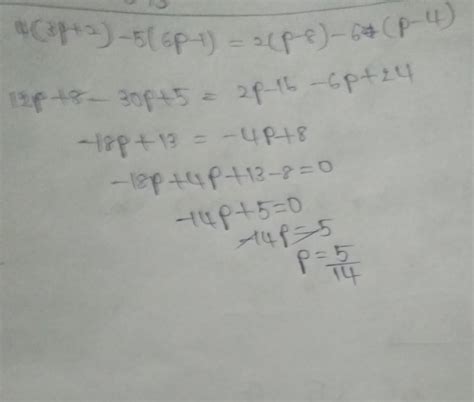 4(3p+2)-5(6p-1)=2(p-8)-6(p-4)
12p+8-30p+5=2p-16-6p+24
-18p+13=-4p+8
-18p+4p+13-8=0
-14p+5=0
-14p=-5
p=5/14